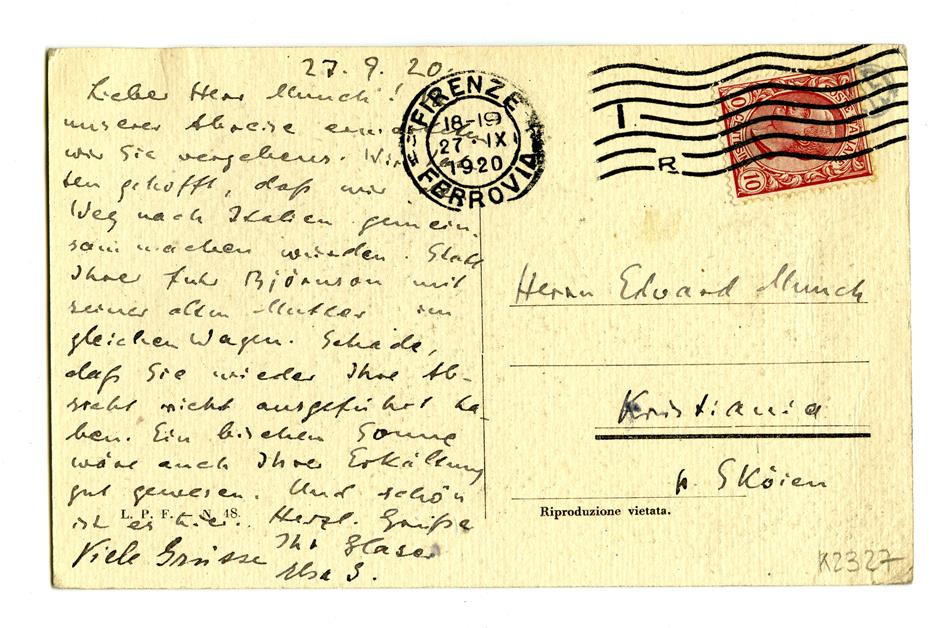 27. 9. 20.
Lieber Herr Munch!
unserer Abreise
wir Sie vergebens. Wir
ten gehofft, daß wir
Weg nach Italien gemein-
sam machen würden. Statt
Ihrer fuhr Björnson mit
seiner alten Mutter im
gleichen Wagen. Schade,
daß Sie wieder Ihre Ab-
sicht nicht ausgeführt ha-
ben. Ein bischen Sonne
wäre auch Ihrer Erkältung
gut gewesen. Und schön
ist es hier. Herzl. Grüße
Ihr Glaser
Viele Grüsse
Elsa G.
L. P. F. — N. 48.
FIRENZE
18-19
27·IX
1920
FERROVIA
I.
R.
10
Herrn Edvard Munch
Kristiania
p. Sköien
Riproduzione vietata.
K2327